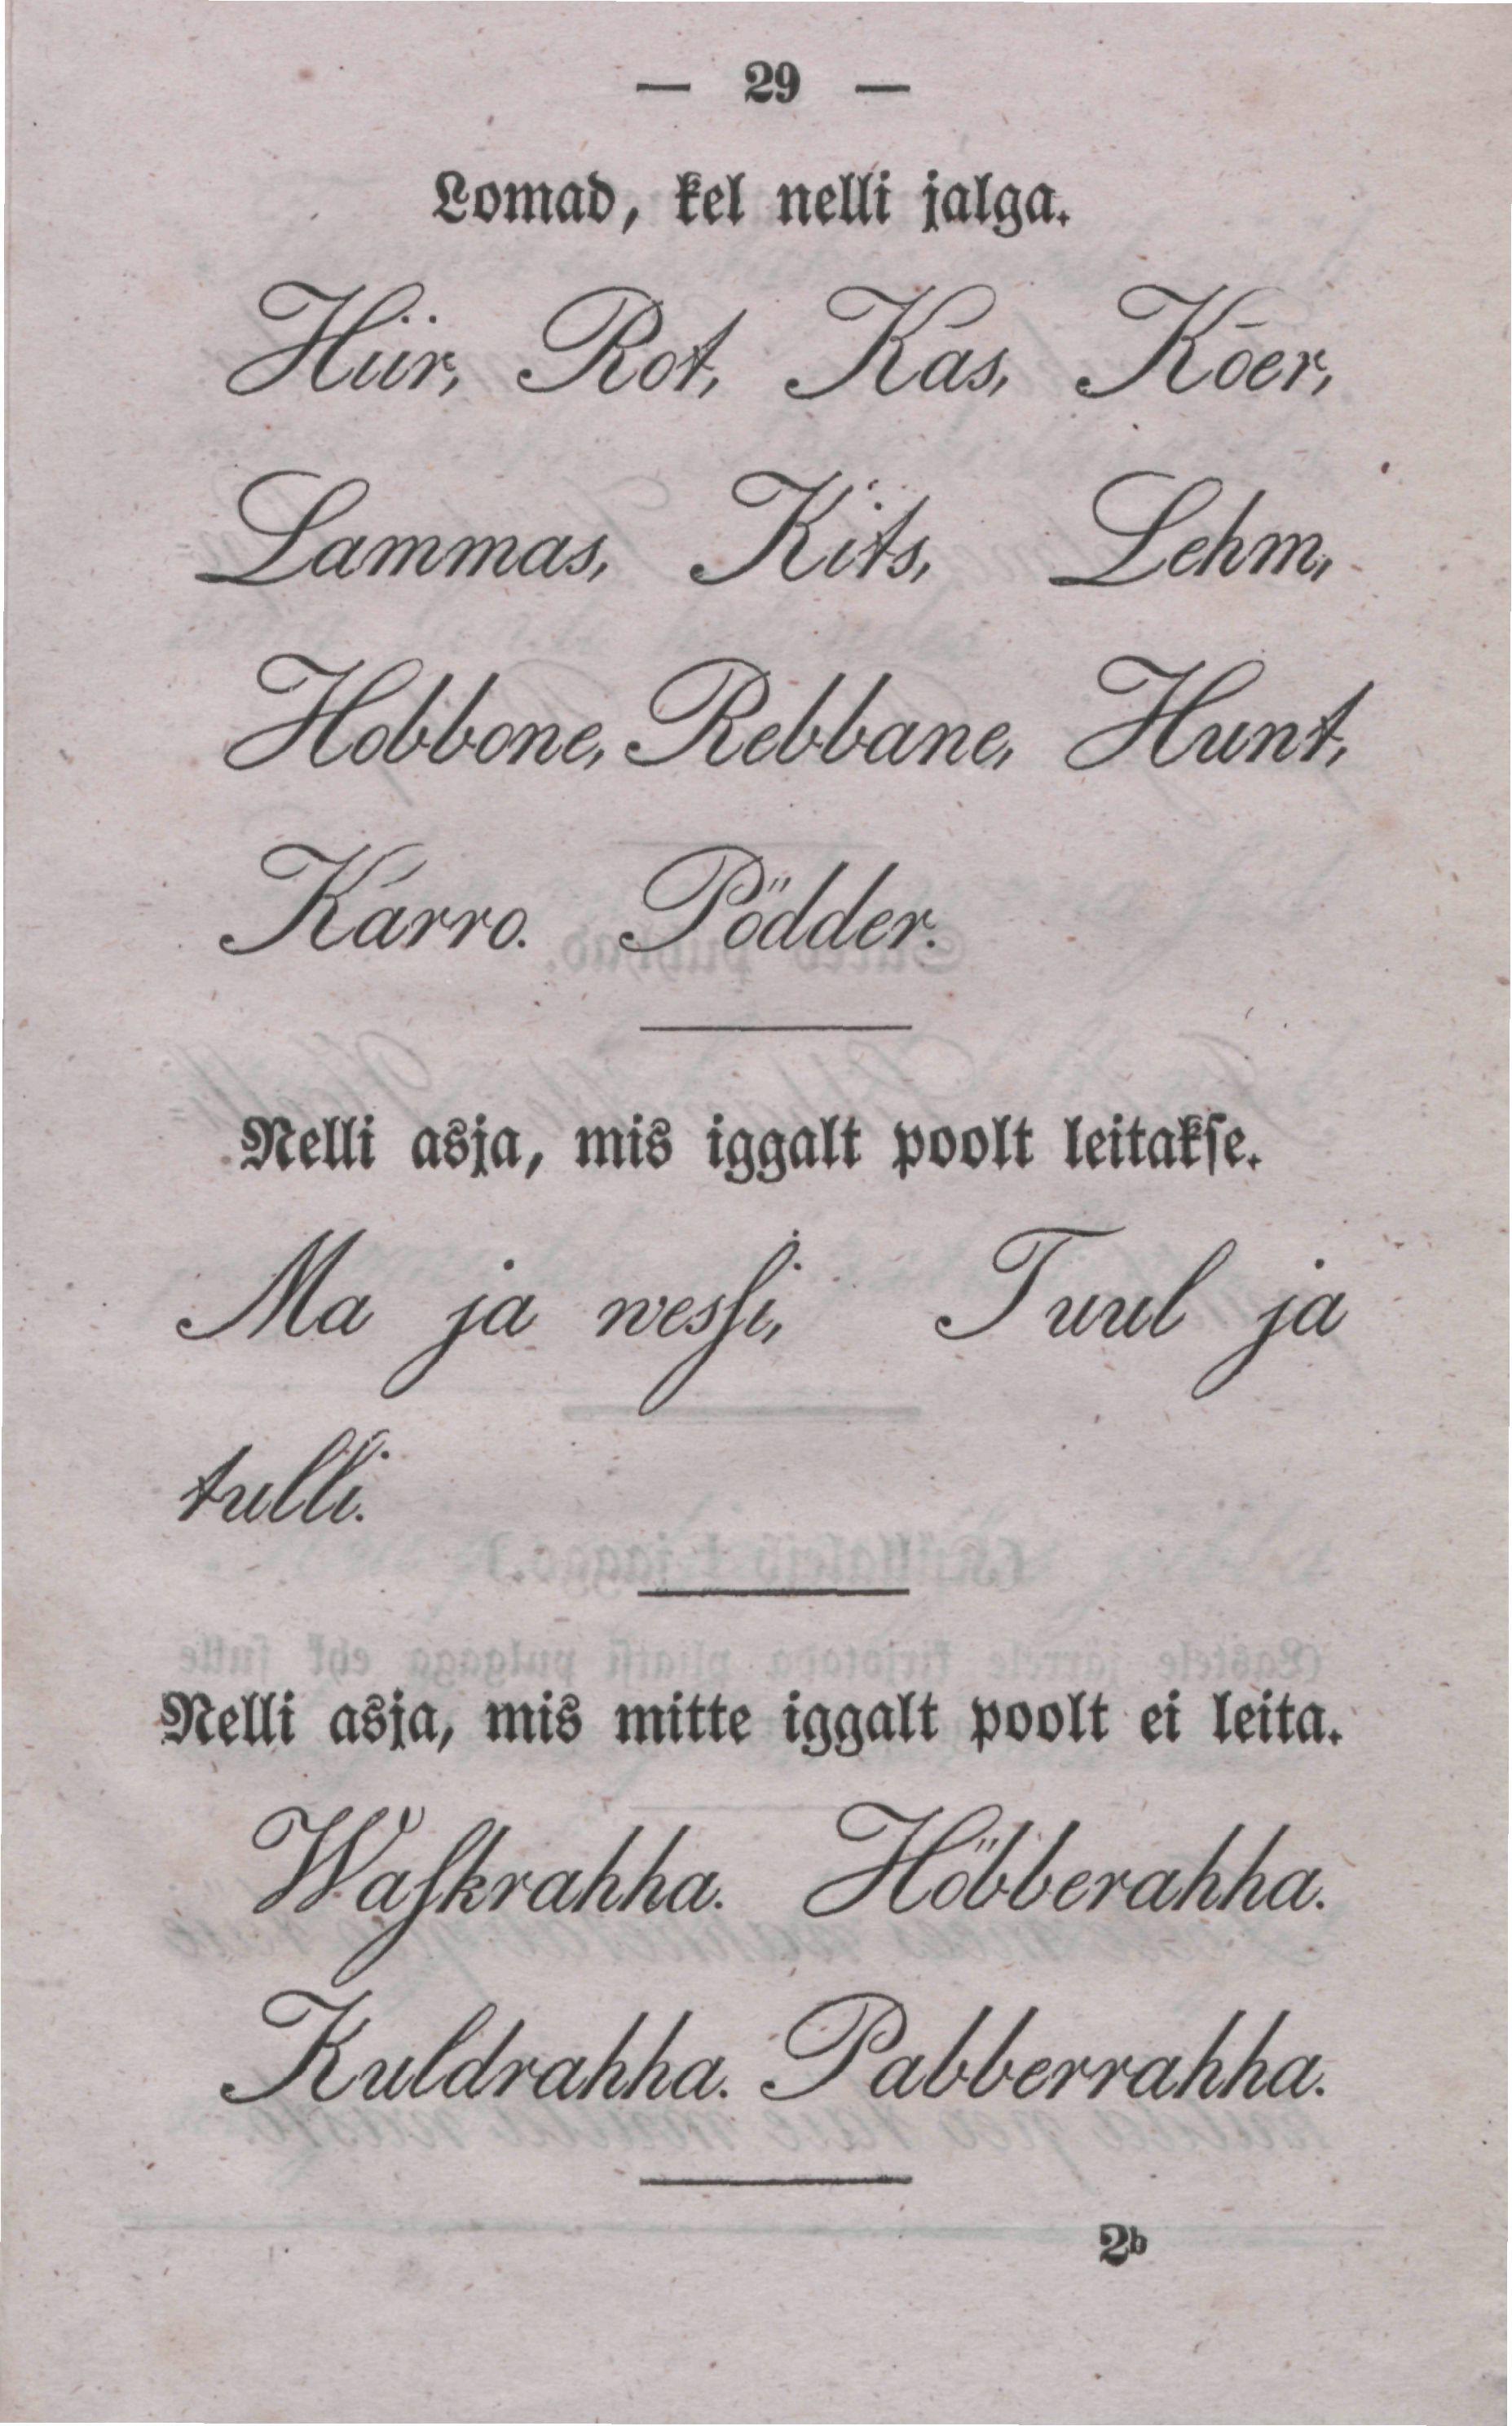 — 29 —
Lomad, kel nelli jalga.
Hiir, Rot, Kas, Kōer,
Lammas, Kits, Lehm,
Hobbone, Rebbane, Hunt,
Karro. Pödder.
Nelli asja, mis iggalt poolt leitakſe.
Ma ja wesſi, Tuul ja
tulli.
Nelli asja, mis mitte iggalt poolt ei leita.
Waſkrahha. Höbberahha.
Kuldrahha. Pabberrahha.
2b